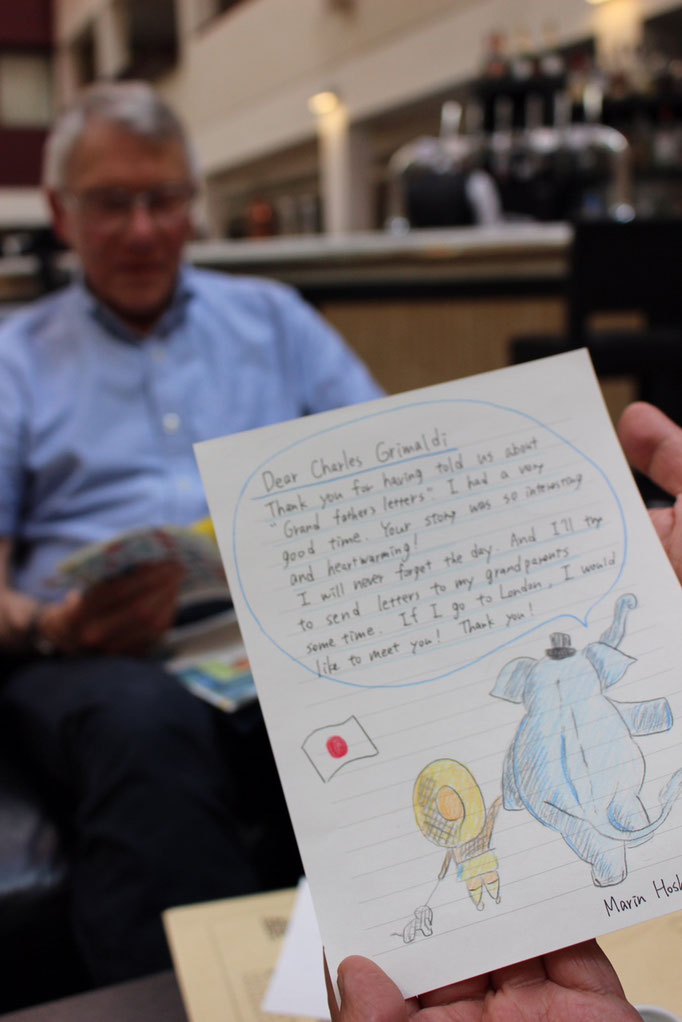 Dear Charles Grimaldi
Thank you for having told us about
"Grand fathers letters". I had a very
good time. Your story was so interesting
and heartwarming!
I will never forget the day. And I'll try
to send letters to my grandparents
some time. If I go to London, I would
like to meet you! Thank you!
Marin